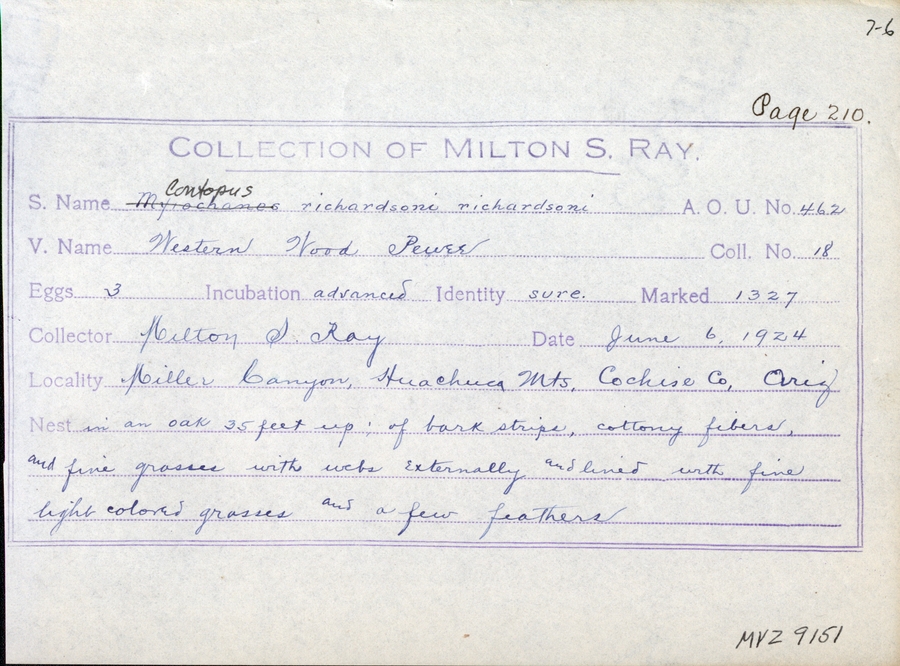 7-6
Page 210.
COLLECTION OF MILTON S. RAY.
Contopus
S. Name Myiochanes richardsoni richardsoni A. O. U. No. 462
V. Name Western Wood Pewee Coll. No. 18
Eggs 3 Incubation advanced Identity sure. Marked 1327
Collector Milton S. Ray Date June 6, 1924
Locality Miller Canyon, Huachuca Mts, Cochise Co, Ariz
Nest in an oak 35 feet up; of bark strips, cottony fibers,
and fine grasses with webs externally and lined with fine
light colored grasses and a few feathers
MVZ 9151